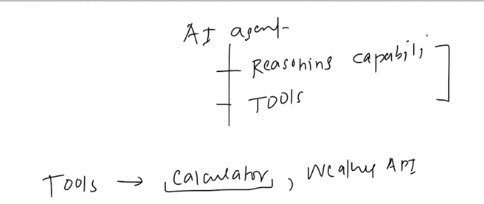 AI agent
Reasoning capabili
Tools
Tools → calculator, Weather API